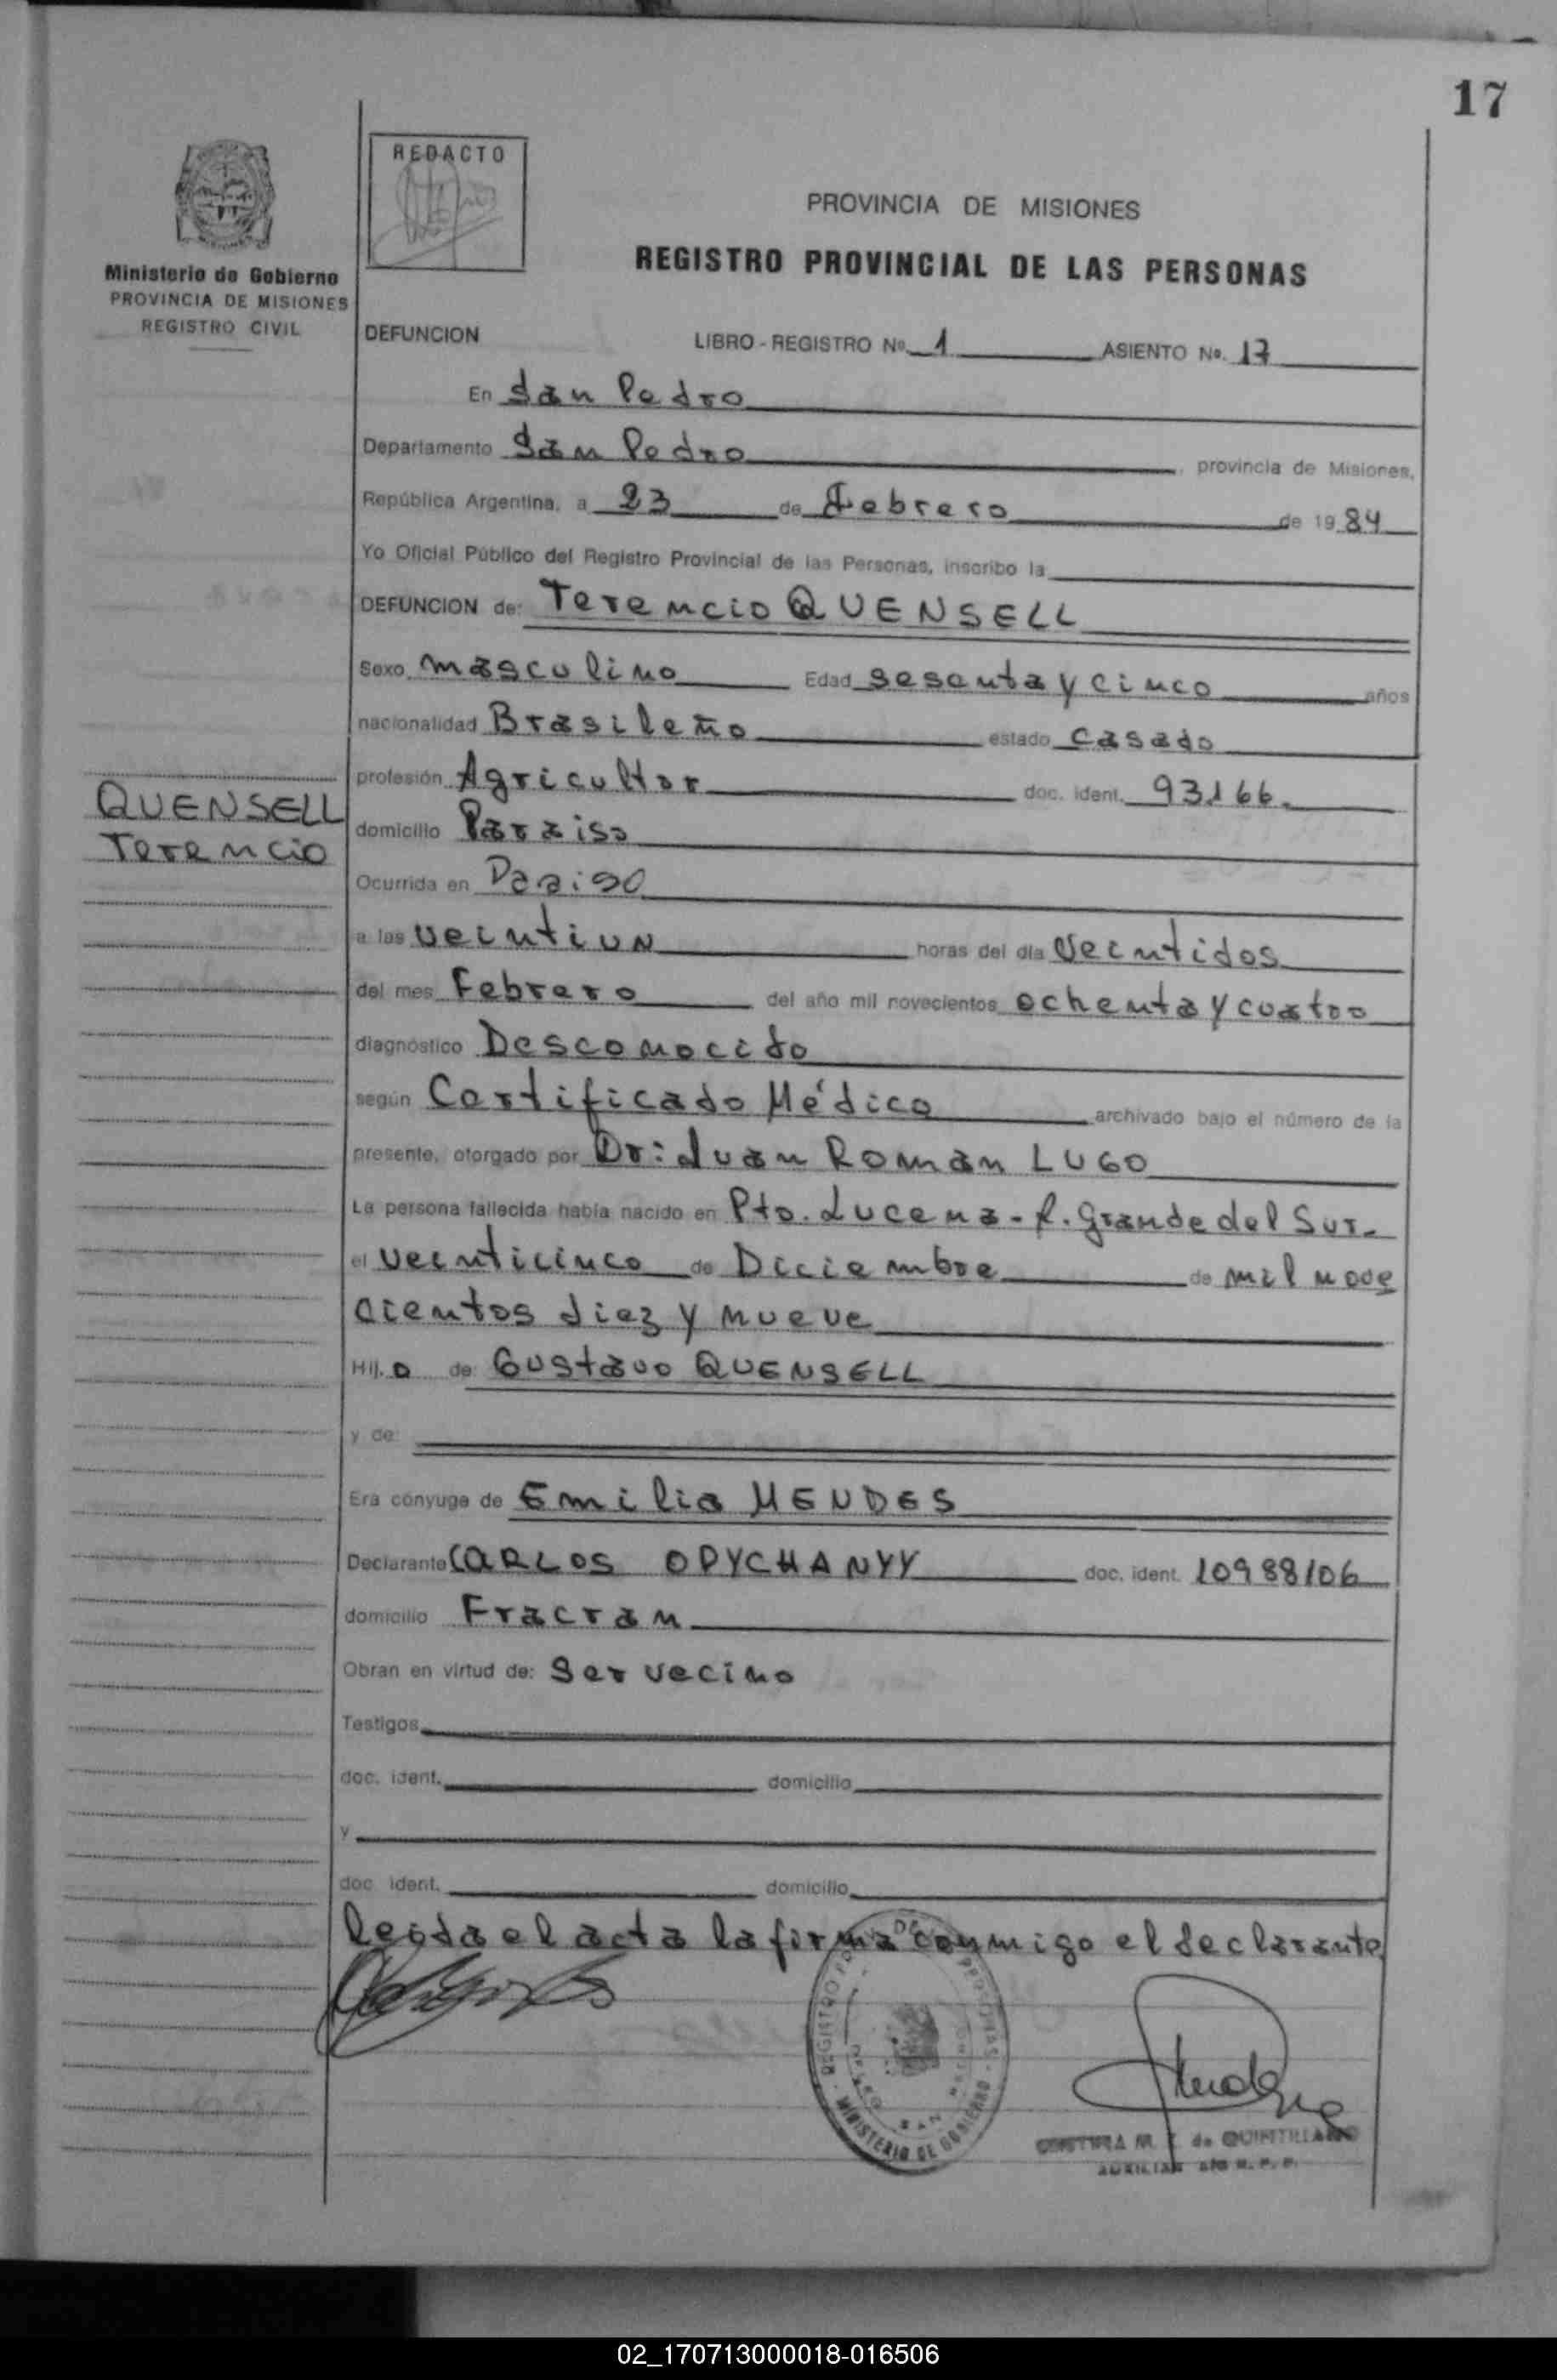 17
REDACTO
PROVINCIA DE MISIONES
REGISTRO PROVINCIAL DE LAS PERSONAS
Ministerio de Gobierno
PROVINCIA DE MISIONES
REGISTRO CIVIL
DEFUNCION LIBRO - REGISTRO Nº. 1 ASIENTO Nº. 17
En San Pedro
Departamento San Pedro, provincia de Misiones,
República Argentina, a 23 de Febrero de 1984
Yo Oficial Público del Registro Provincial de las Personas, inscribo la
DEFUNCION de: Terencio QUENSELL
Sexo masculino Edad sesenta y cinco años
nacionalidad Brasileño estado casado
profesión Agricultor doc. ident. 93166.
QUENSELL
Terencio
domicilio Paraiso
Ocurrida en Paaiso
a las veintiun horas del día Veintidos
del mes Febrero del año mil novecientos ochenta y cuatro
diagnóstico Desconocido
según Certificado Médico archivado bajo el número de la
presente, otorgado por Dr: Juan Roman LUGO
La persona fallecida había nacido en Pto. Lucena - R. Grande del Sur.
el veinticinco de Diciembre de mil nove
cientos diez y nueve
Hij.o de: Gustavo QUENSELL
y de:
Era cónyuge de Emilia MENDES
Declarante CARLOS OPYCHANYY doc. ident. 10988106
domicilio Fracran
Obran en virtud de: Ser vecino
Testigos
doc. ident. domicilio
y
doc. ident. domicilio
Leida el acta la firma conmigo el declarante
REGISTRO PERSONAS
MINISTERIO DE GOBIERNO
M. de QUINTILLANO
AUXILIAR R. P. P.
02_170713000018-016506